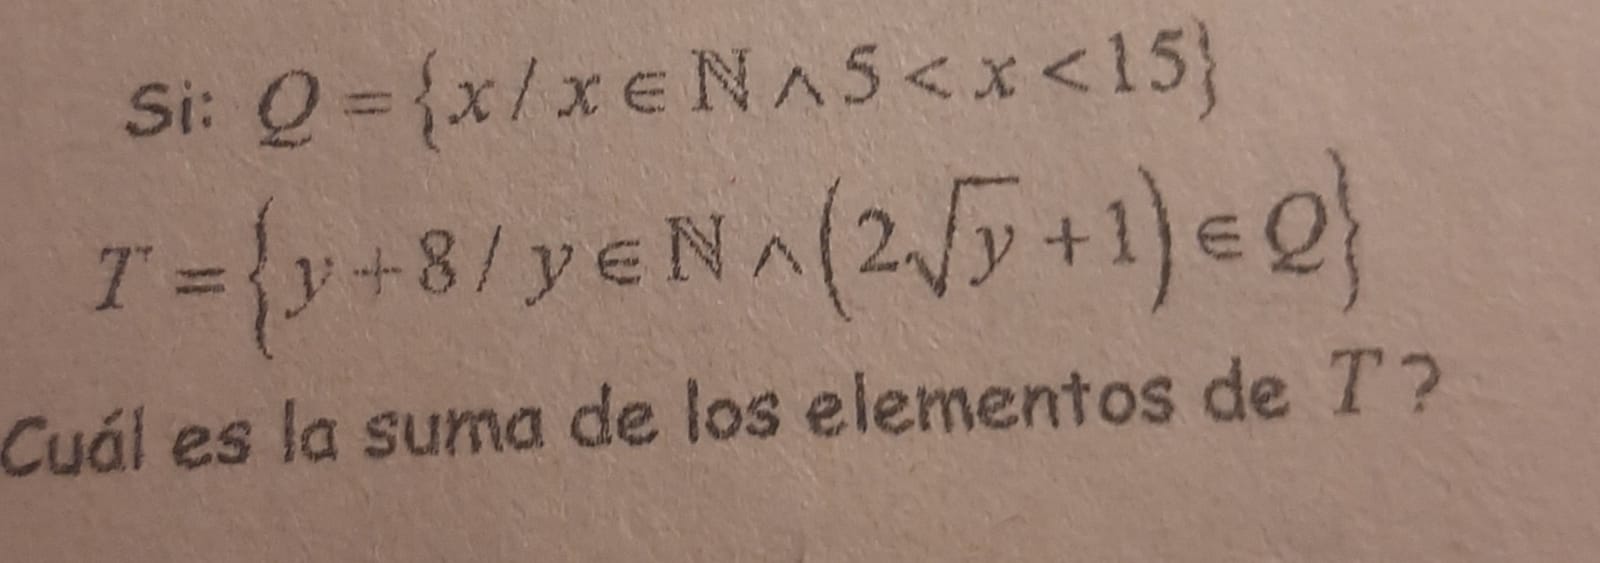 Si: Q = {x / x ∈ ℕ ∧ 5 < x < 15}
T = {y + 8 / y ∈ ℕ ∧ (2√y + 1) ∈ Q}
Cuál es la suma de los elementos de T?